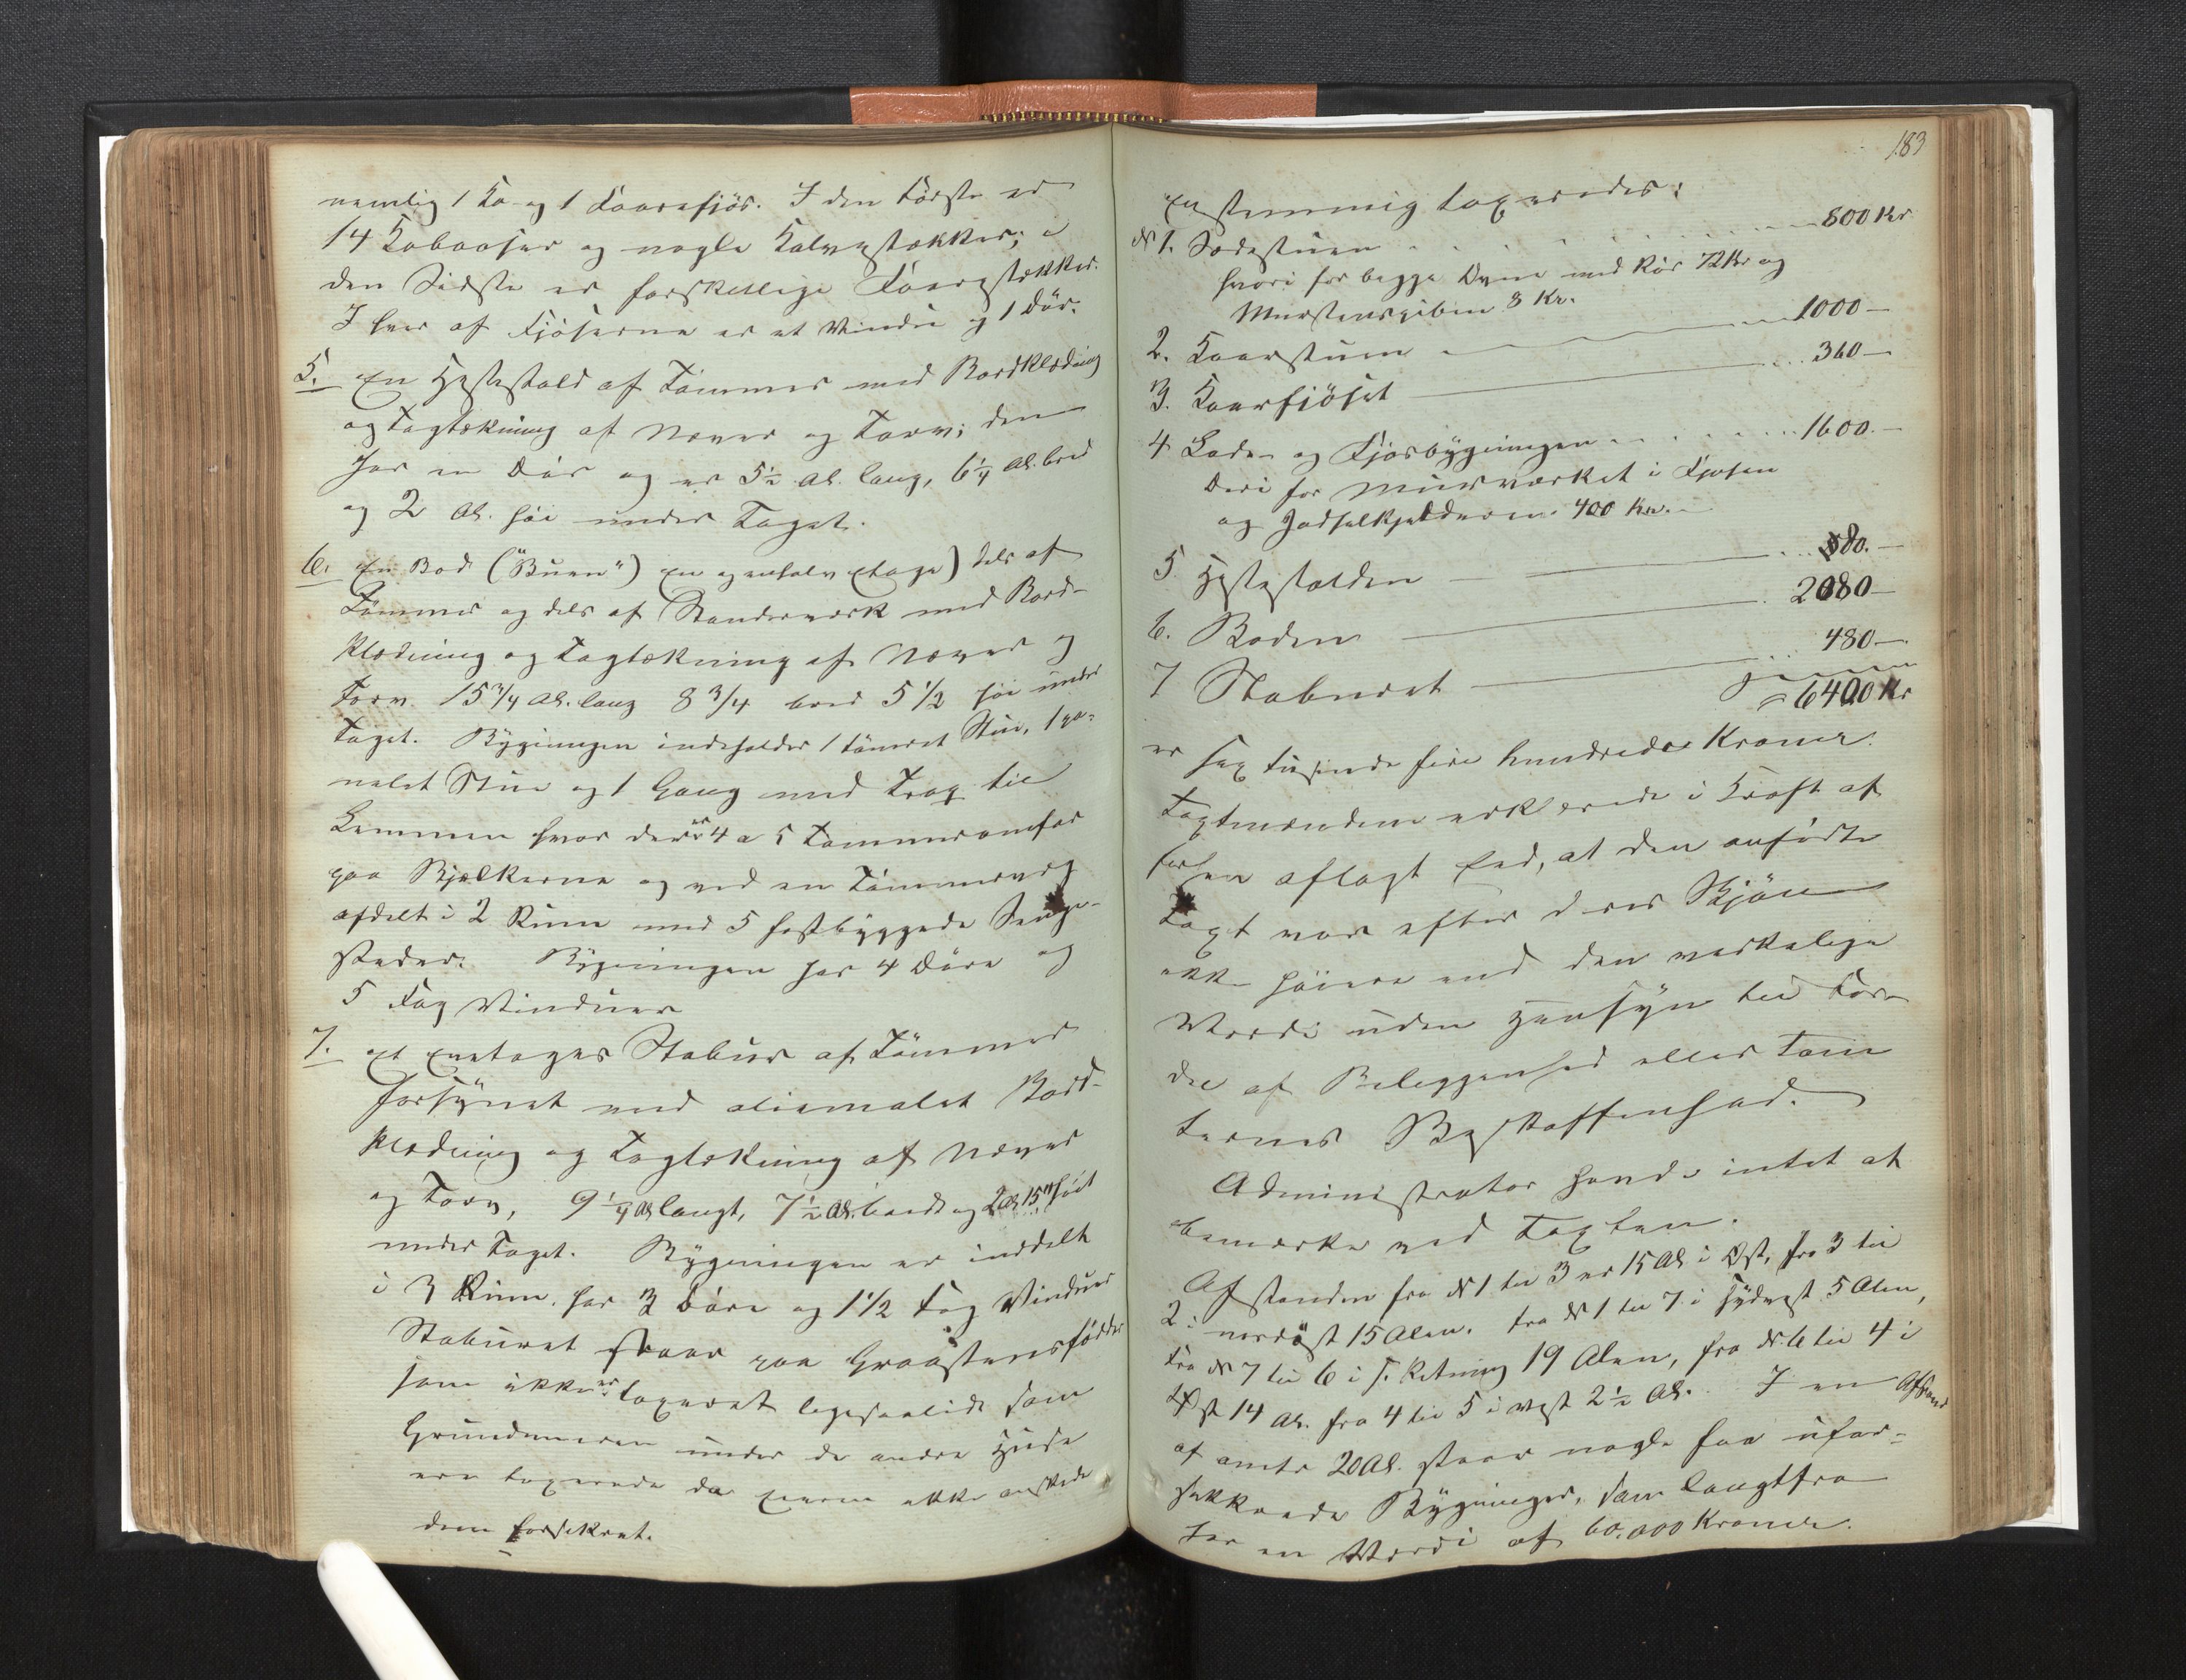 nemlig 1 Ko og 1 Faarefjös. I den Første er
14 Kobaaser og nogle Kalvestækker; i
den Sidste er forskellige Faarestækker.
I hver af Fjöserne er et Vindu og 1 Dör.
5. En Hestestald af Tömmer med Bordklædning
og Tagtækning af Næver og Torv; den
har en Dör og er 5½ Al. lang, 6¼ Al. bred
og 2 Al. höi under Taget.
6. En Bod ("Buen") en og en halv Etage) dels af
Tömmer og dels af Standerværk med Bord-
klædning og Tagtækning af Næver og
Torv 15 3/4 Al. lang 8 3/4 bred 5 1/2 höi under
Taget. Bygningen indeholder 1 tömret Stue, 1 pa-
nelet Stue og 1 Gang med Trap til
Lemmen hvor der er 4 a 5 Tømmeromfar
paa Bjelkerne og ved en Tömmervæg
afdelt i 2 Rum med 5 fastbyggede Senge-
steder. Bygningen har 4 Döre og
5 Fag Vinduer
7. Et Enetages Stabur af Tömmer
forsynet med oliemalet Bord-
klædning og Tagtækning af Næver
og Torv, 9¼ Al langt, 7½ Al. bredt og 2 Al 15" höit
under Taget. Bygningen er inddelt
i 3 Rum, har 3 Döre og 1 1/2 Fag Vinduer
Staburet staar paa Graastensfödder
som ikke er taxeret ligesaalidt som
Grundmuren under de andre Huse
ere taxerede da Eieren ikke önskede
dem forsikret.
183
Enstemmig taxeredes:
№ 1. Sædestuen 800 Kr
hvori for begge Ovne med Rör 72 Kr og
Murstenspiben 8 Kr.
2. Kaarstuen 1000 —
3. Kaarfjöset 360 —
4 Lade- og Fjösbygningen 1600.—
Deri for Murværket i Fjøsen
og Jodselkjelderen 400 Kr.
5 Hestestalden 80.—
6. Boden 2080 —
7 Staburet 480 —
= 6400 Kr
er sextusinde fire hundrede Kroner.
Taxtmændene erklærede i Kraft af
forhen aflagt Eed, at den anförte
Taxt var efter deres Skjön
ikke höiere end den verkelige
Værdi uden Hensyn til For-
del af Beliggenhed eller Tom-
ternes Beskaffenhed.
Administrator havde intet at
bemærke ved Taxten.
Afstanden fra № 1 til 3 er 15 Al i Øst, fra 3 til
2 i nordöst 15 Alen. Fra № 1 til 7 i Sydvest 5 Alen,
fra № 7 til 6 i s. Retning 19 Alen, fra № 6 til 4 i
Øst 14 Al. fra 4 til 5 i vest 2½ Al. I en Afstand
af omtr 20 Al. staar nogle faa ufor-
sikkrede Bygninger, som langtfra
har en Værdi af 60,000 Kroner.